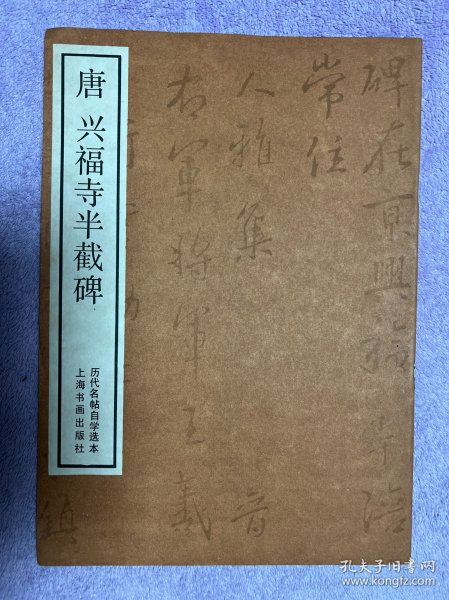 唐 兴福寺半截碑
历代名帖自学选本
上海书画出版社
碑在京興福寺陪
常住
人雅集
右軍將軍王羲
鎮
孔夫子旧书网
www.kongfz.com